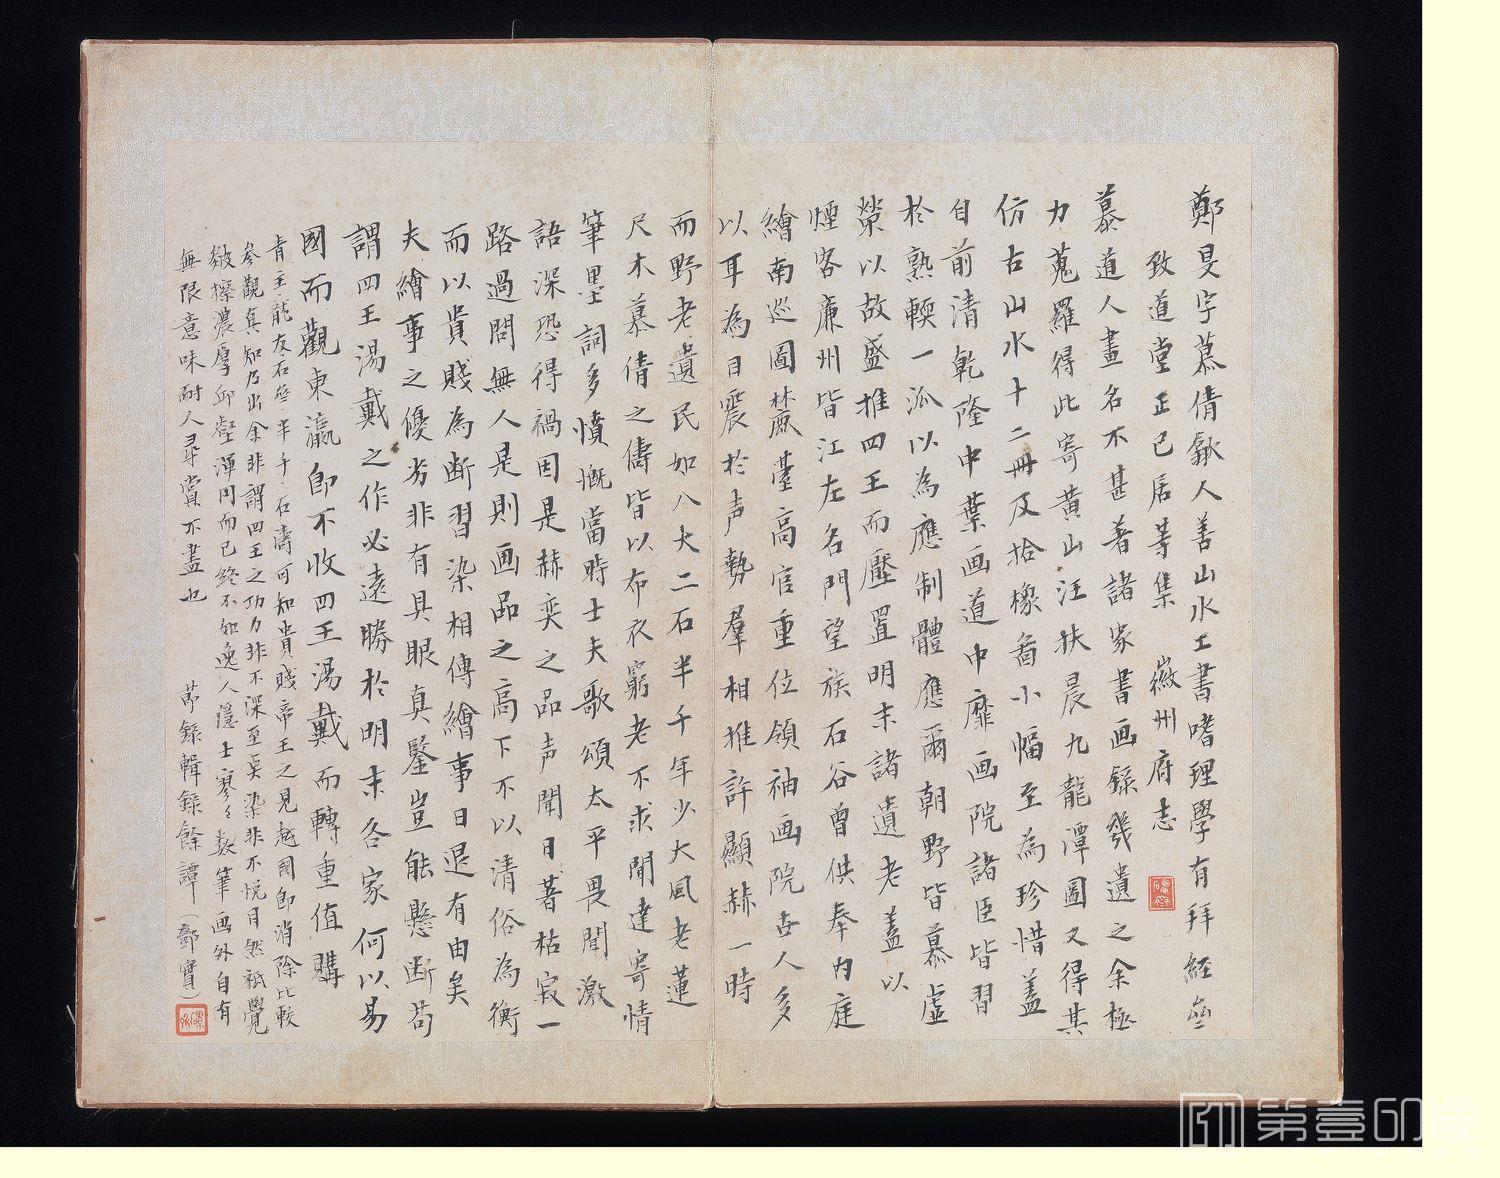 鄭旻字慕倩歙人善山水工書嗜理學有拜經齋
致道堂正己居等集　徽州府志
慕道人畫名不甚著諸家書画錄幾遺之余極
力蒐羅得此寄黃山汪扶晨九龍潭圖又得其
仿古山水十二冊及拾橡圖小幅至為珍惜蓋
自前清乾隆中葉画道中靡画院諸臣皆習
於熟輭一派以為應制體應爾朝野皆慕虛
榮以故盛推四王而壓置明末諸遺老蓋以
煙客廉州皆江左名門望族石谷曾供奉內庭
繪南巡圖麓臺高官重位領袖画院世人多
以耳為目震於声勢羣相推許顯赫一時
而野老遺民如八大二石半千年少大風老蓮
尺木慕倩之儔皆以布衣窮老不求聞達寄情
筆墨詞多憤慨當時士夫歌頌太平畏聞激
語深恐得禍因是赫奕之品声聞日著枯寂一
路過問無人是則画品之高下不以清俗為衡
而以貴賤為断習染相傳繪事日退有由矣
夫繪事之優劣非有具眼真鑒豈能懸断苟
謂四王湯戴之作必遠勝於明末各家何以易
國而觀東瀛即不收四王湯戴而轉重值購
青主龍友石谿半千石濤可知貴賤帝王之見越國即消除比較
參觀真知乃出余非謂四王之功力非不深至奚染非不悅目然祇覺
皴擦濃厚邱壑渾同而已終不如逸人隱士寥々數筆画外自有
無限意味耐人尋賞不盡也
節錄輯錄餘譚（鄧實）
第壹印象